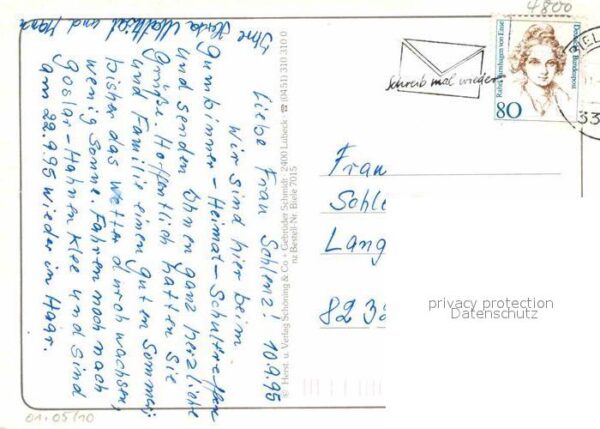 10.9.95
Liebe Frau Schlenz!
Wir sind hier beim
Gumbinner-Heimat-Schultreffen
und senden Ihnen ganz herzliche
Grüße. Hoffentlich hatten Sie
und Familie einen guten Sommer,
bisher das Wetter durchwachsen,
wenig Sonne. Fahren noch nach
Goslar-Hahnenklee und sind
am 22.9.95 wieder in Hagr.
Ihre und Hans
© Herst. u. Verlag Schöning & Co + Gebrüder Schmidt · 2400 Lübeck · ☎ (0451) 310 310 0
nz Bestell-Nr. Biele 7015
4800
Schreib mal wieder
Rahel Varnhagen von Ense
Deutsche Bundespost
80
33
Frau
Schle
Lang
823
privacy protection
Datenschutz
01.05/10